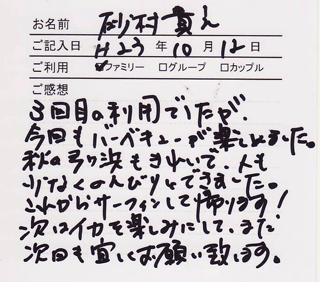 お名前 砂村 真人
ご記入日 H23 年 10 月 12 日
ご利用 ☑ファミリー □グループ □カップル
ご感想
3回目の利用でしたが、
今回もバーベキューが楽しめました。
秋の弓ヶ浜もきれいで、人も
少なくのんびりとできました。
これからサーフィンして帰ります!
次はイカを楽しみにして、また
次回も宜しくお願い致します。